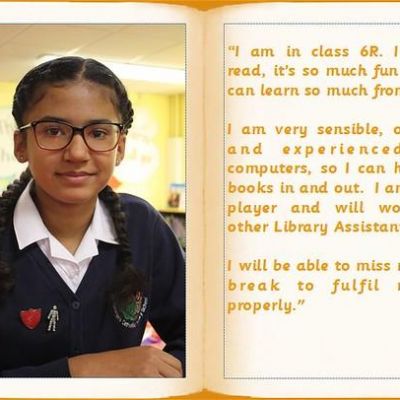 “I am in class 6R. I
read, it’s so much fun
can learn so much from
I am very sensible, o
and experienced
computers, so I can h
books in and out. I am
player and will wo
other Library Assistant
I will be able to miss
break to fulfil
properly.”